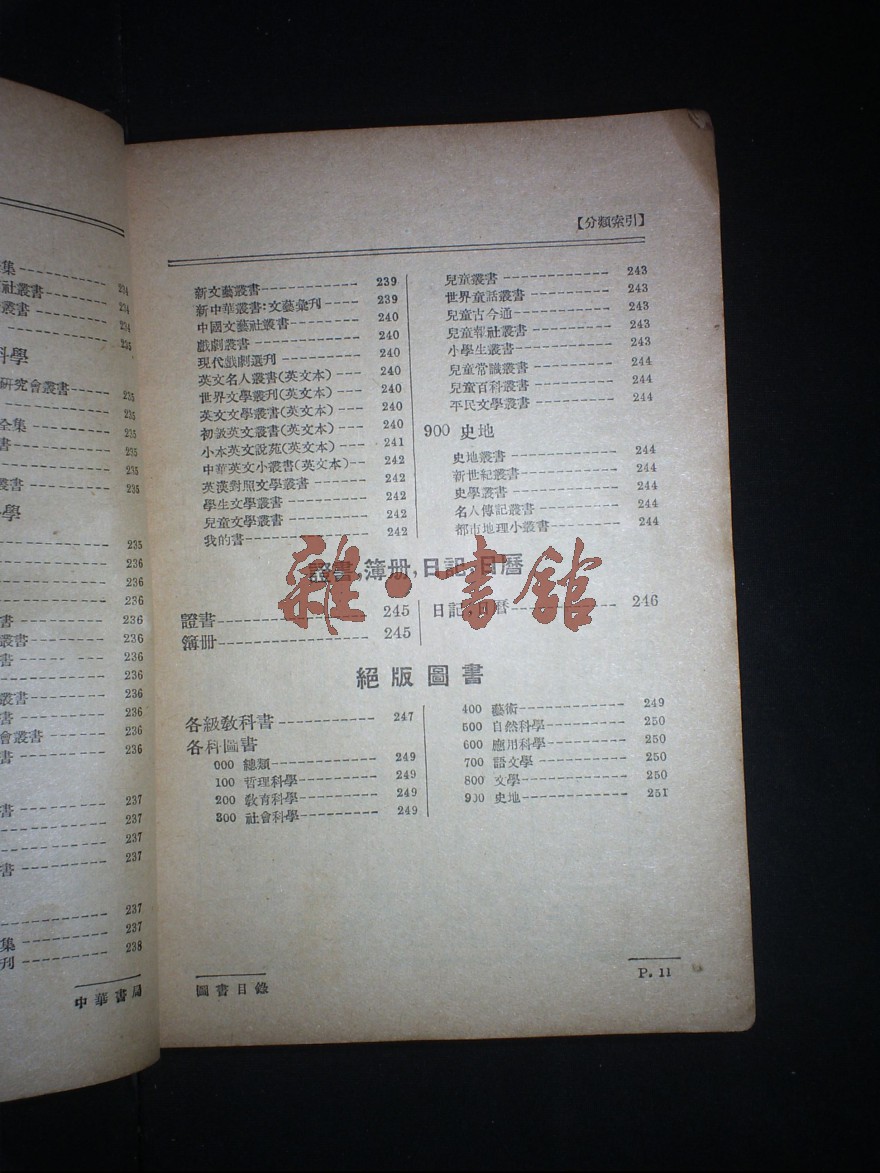 集 234
社叢書 234
叢書 234
235
科學
研究會叢書 235
235
全集 235
書 235
235
叢書 235
學
235
236
236
236
書 236
叢書 236
書 236
236
叢書 236
書 236
會叢書 236
書 236
書 237
237
237
書
237
237
集 238
刊
中華書局
【分類索引】
新文藝叢書 239
新中華叢書:文藝彙刊 239
中國文藝社叢書 240
戲劇叢書 240
現代戲劇選刊 240
英文名人叢書(英文本) 240
世界文學叢刊(英文本) 240
英文文學叢書(英文本) 240
初級英文叢書(英文本) 240
小本英文說苑(英文本) 241
中華英文小叢書(英文本) 242
英漢對照文學叢書 242
學生文學叢書 242
兒童文學叢書 242
我的書 242
兒童叢書 243
世界童話叢書 243
兒童古今通 243
兒童報社叢書 243
小學生叢書 243
兒童常識叢書 244
兒童百科叢書 244
平民文學叢書 244
900 史地
史地叢書 244
新世紀叢書 244
史學叢書 244
名人傳記叢書 244
都市地理小叢書 244
證書,簿册,日記,日曆
證書 245
簿册 245
日記,日曆 246
絕版圖書
各級教科書 247
各科圖書
000 總類 249
100 哲理科學 249
200 教育科學 249
300 社會科學 249
400 藝術 249
500 自然科學 250
600 應用科學 250
700 語文學 250
800 文學 250
900 史地 251
圖書目錄
P. 11
雜·書館